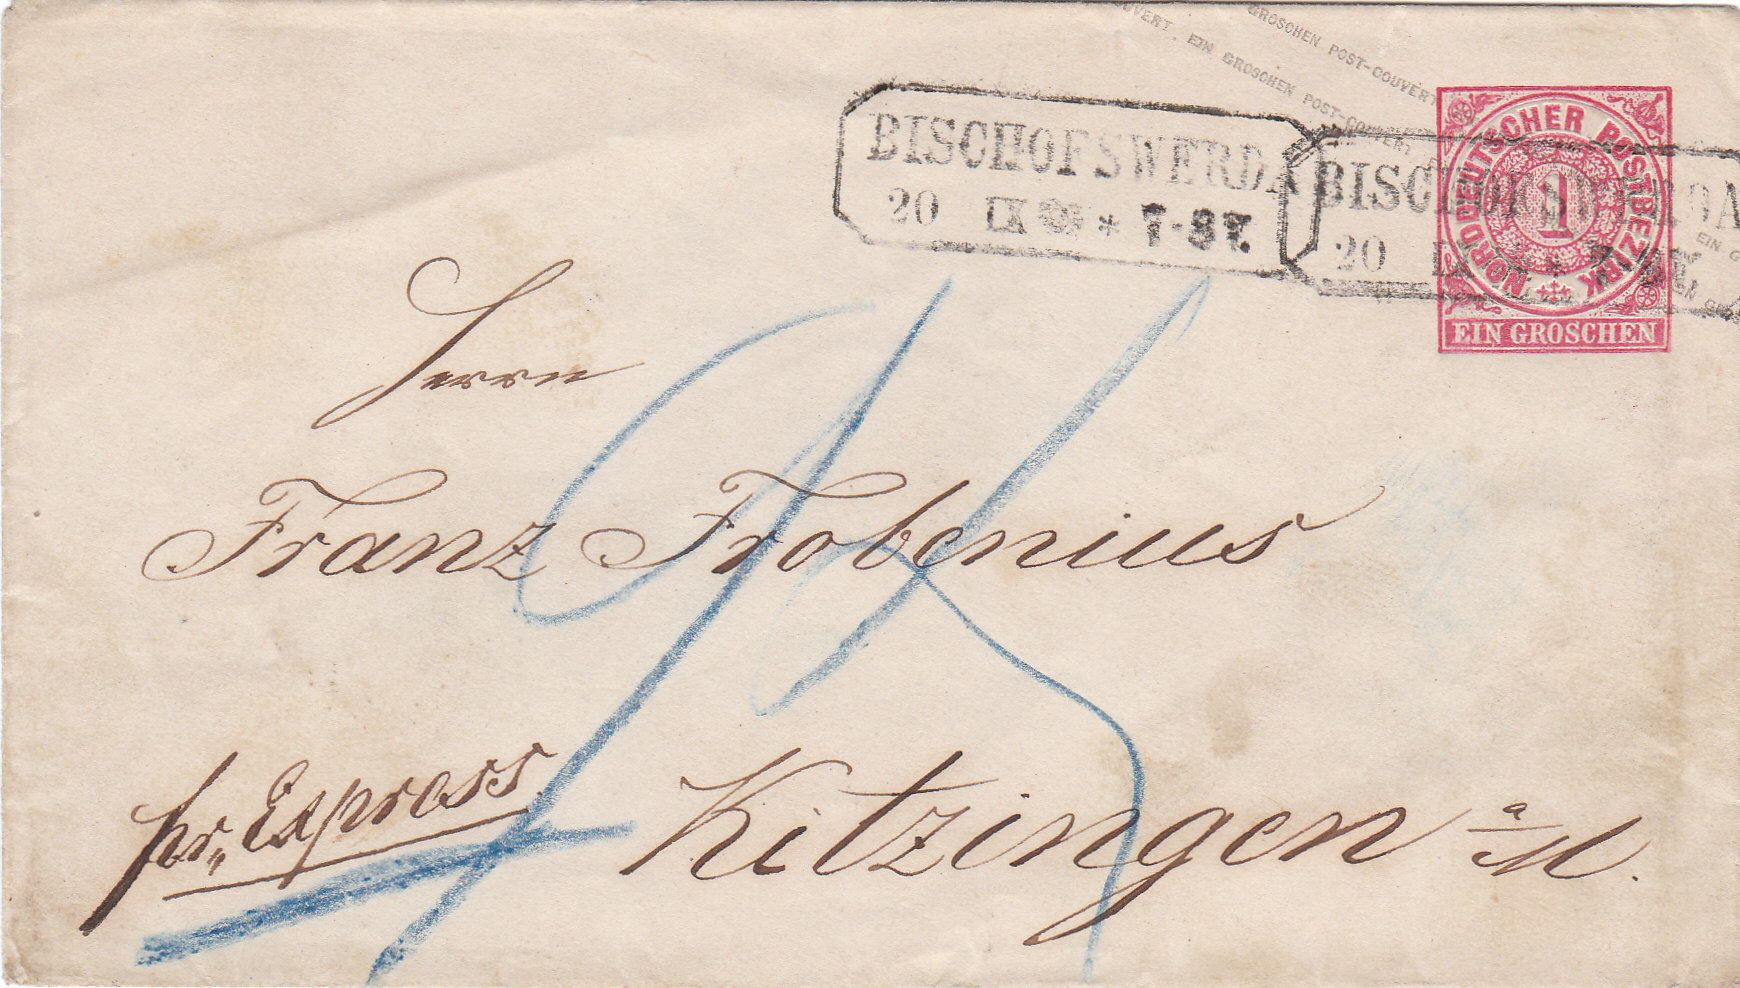 GROSCHEN POST-COUVERT
COUVERT . EIN GROSCHEN POST-COUVERT
BISCHOFSWERDA
20 IX * 7-8V.
BISCHOFSWERDA
20 IX *
NORDDEUTSCHER POSTBEZIRK
1
EIN GROSCHEN
Herrn
Franz Frobenius
pr. Express.
Kitzingen a/M.